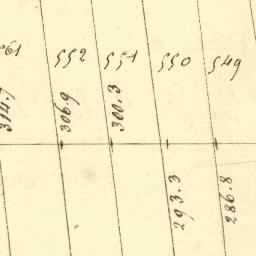 552 551 550 549
306.9 300.3
293.3 286.8